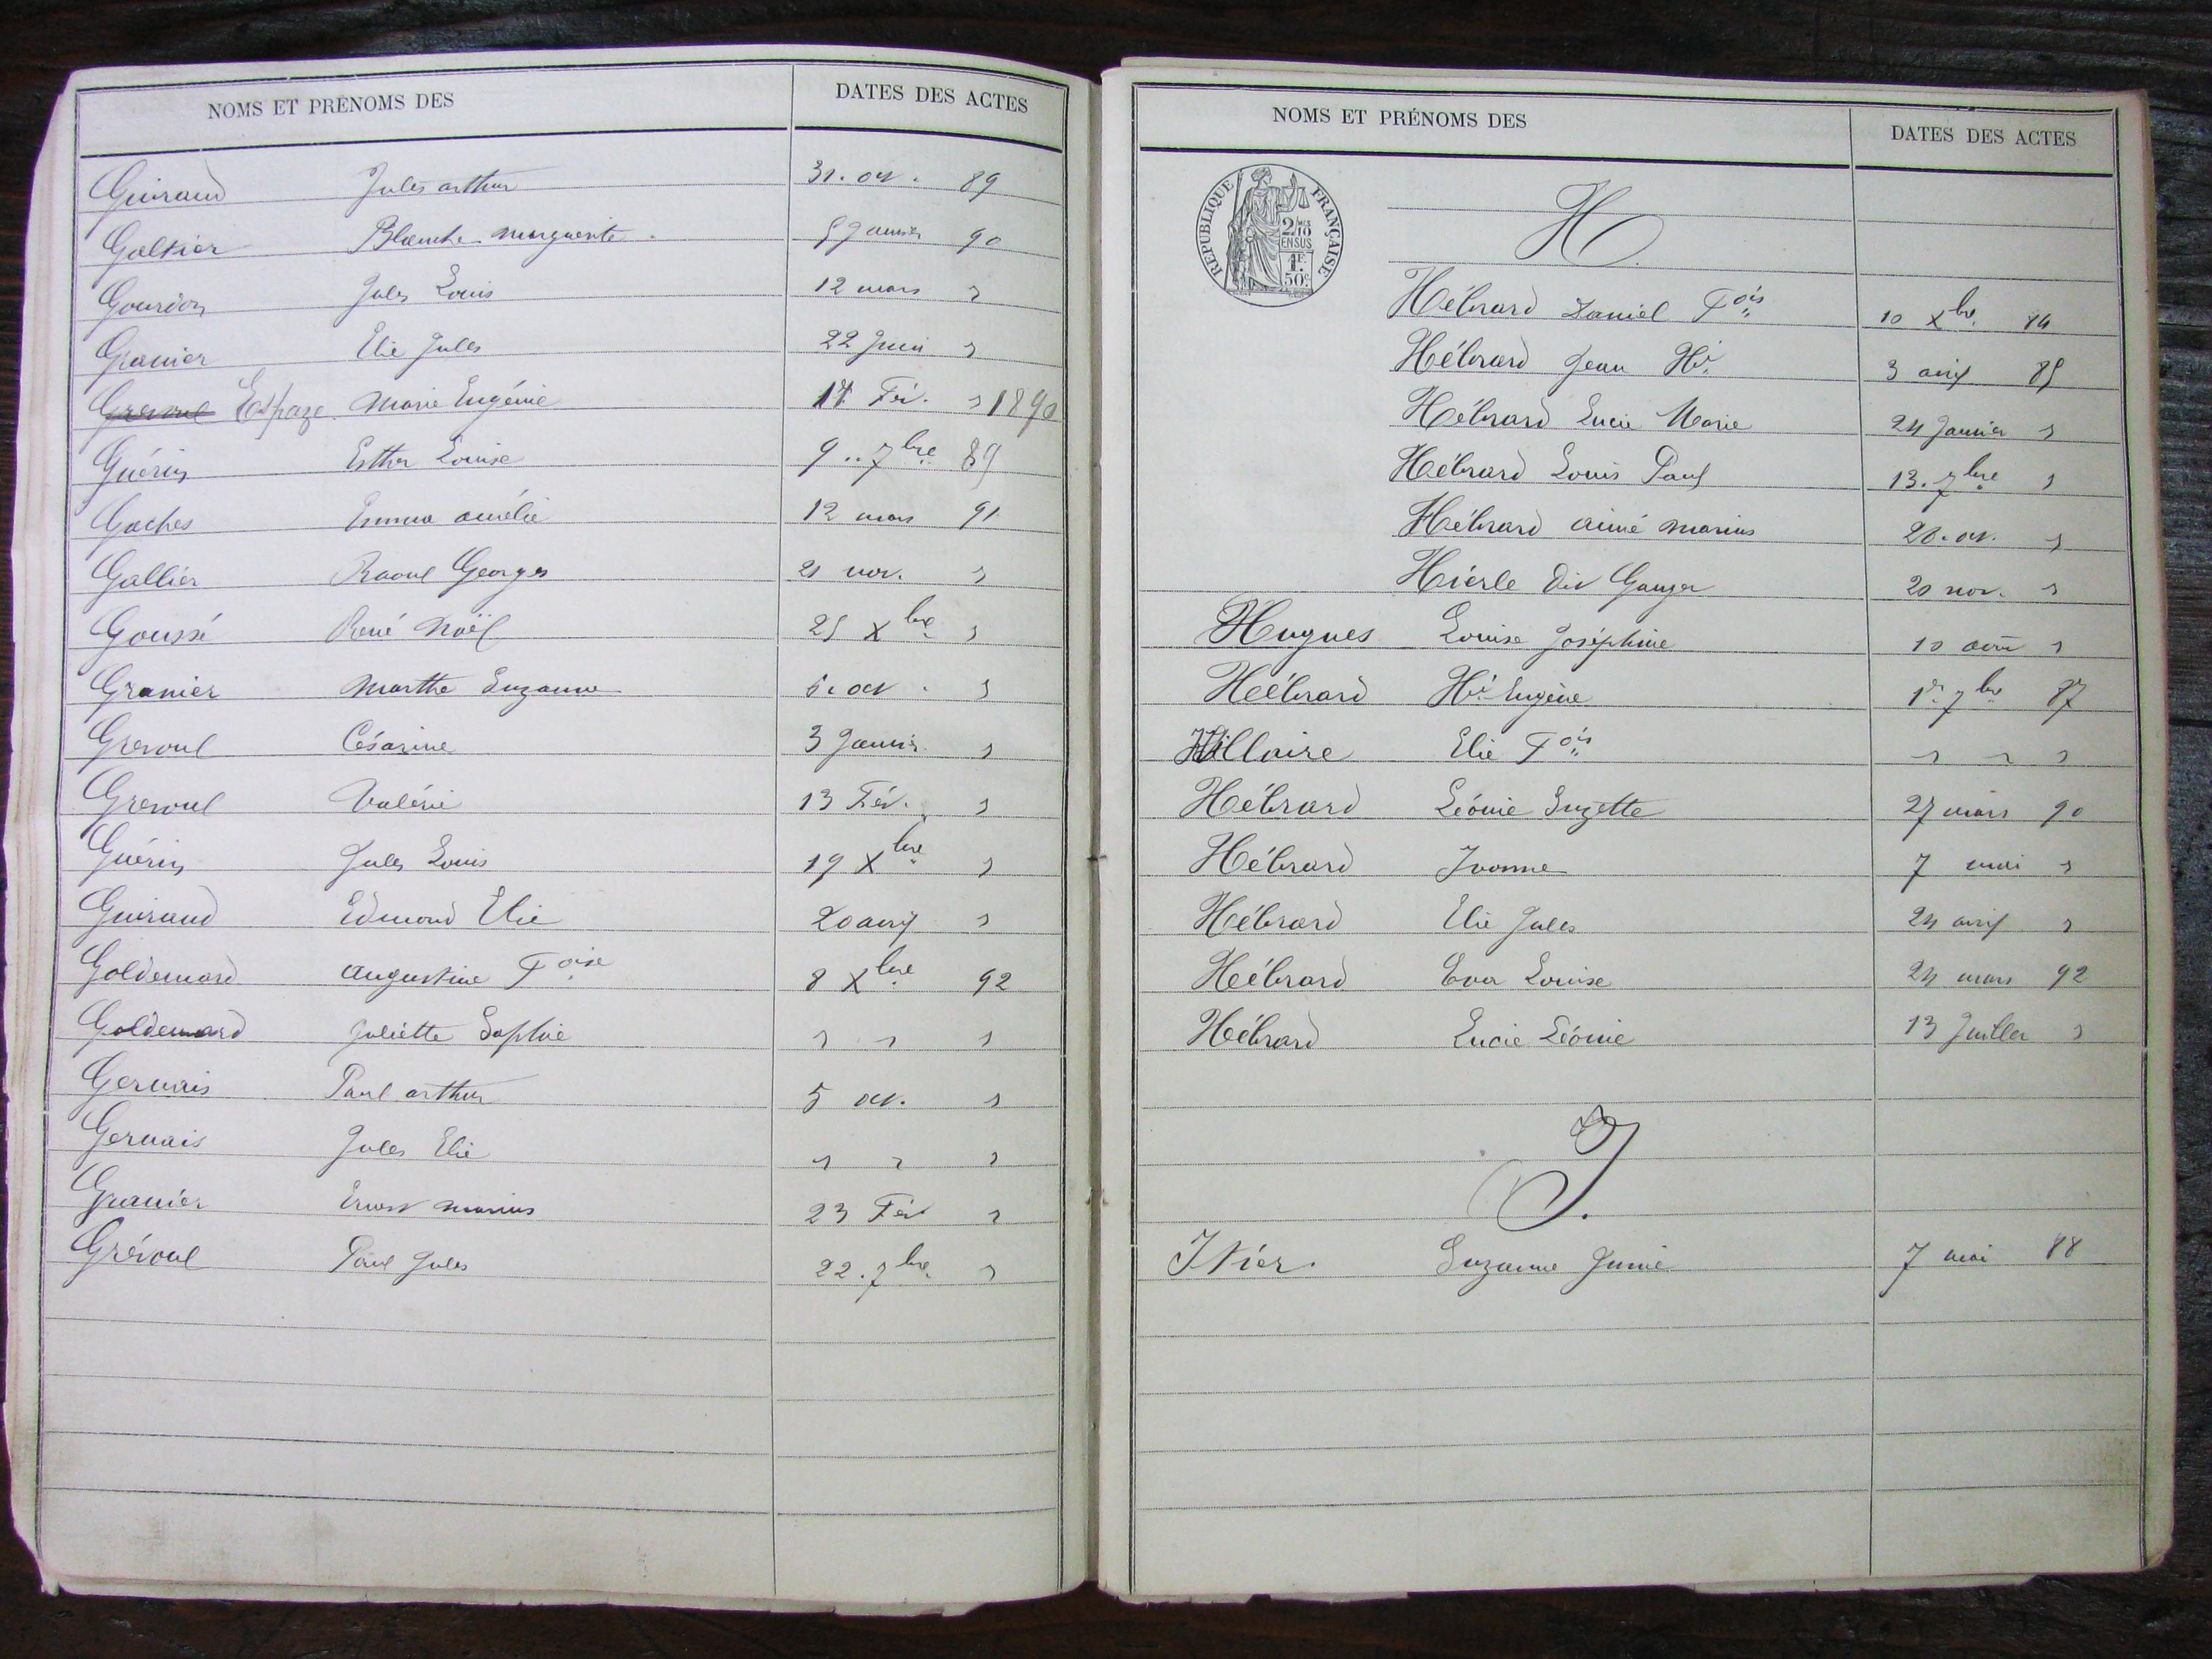 NOMS ET PRÉNOMS DES DATES DES ACTES
Guiraud Jules arthur 31. oct. 89
Galtier Blanche Marguerite 5 Janvier 90
Gourdon Jules Louis 12 mars "
Granier Elie Jules 22 Juin "
Grevoul Espaze Marie Eugénie Fév. " 1890
Guérin Esther Louise 9.. 7bre 89
Gaches Emma aurélie 12 mars 91
Gallier Raoul Georges 21 nov. "
Goussé René Noël 25 Xbre "
Granier Marthe Suzanne 6. oct. "
Grevoul Césarine 3 Janvier "
Grevoul Valérie 13 Fév. "
Guérin Jules Louis 19 Xbre "
Guiraud Edmond Elie 20 avril "
Goldemard augustine Foise 8 Xbre 92
Goldemard Juliette Sophie " " "
Gervais Paul arthur 5 oct. "
Gervais Jules Elie " " "
Granier Ernest Marius 23 Fév "
Grévoul Paul Jules 22. 7bre "
NOMS ET PRÉNOMS DES DATES DES ACTES
RÉPUBLIQUE FRANÇAISE
2/10 EN SUS
1F. 50c.
H.
Hébrard Daniel Fois 10 Xbre 84
Hébrard Jean Hri 3 avril 85
Hébrard Lucie Marie 24 Janvier "
Hébrard Louis Paul 13. 7bre "
Hébrard aimé Marius 28. oct. "
Hierle dit Gauger 20 nov. "
Hugues Louise Joséphine 10 août "
Hébrard Hri Eugène 1er 7bre 87
Hillaire Elie Fois " " "
Hébrard Léonie Suzette 27 mars 90
Hébrard Ivonne 7 mai "
Hébrard Elie Jules 24 avril "
Hébrard Eva Louise 24 mars 92
Hébrard Lucie Léonie 13 Juillet "
I.
Itier. Suzanne Junie 7 mai 88